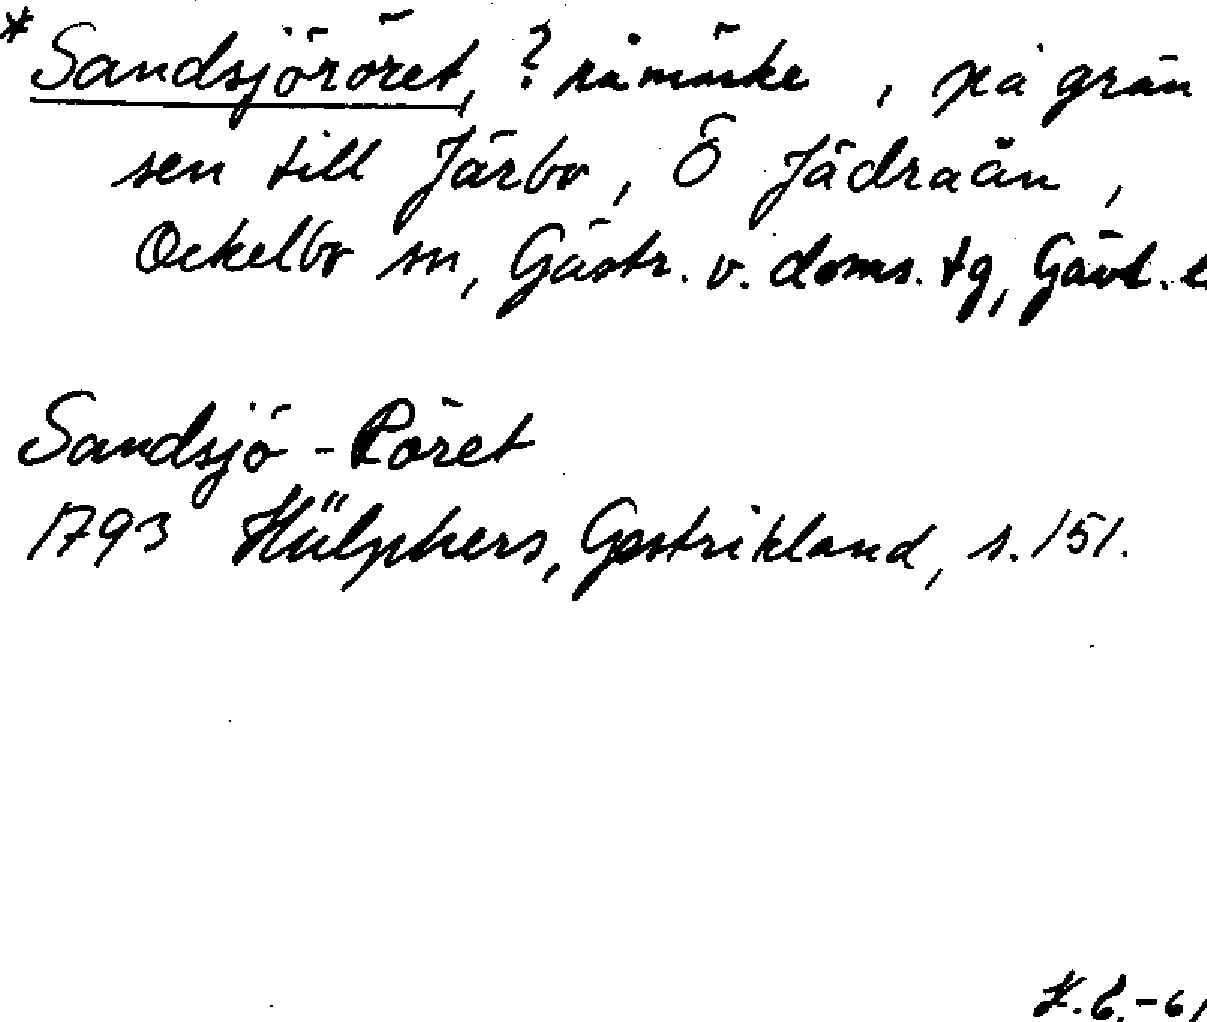 * Sandsjöröret, ? råmärke, på grän
sen till Järbo, Ö Jädraån,
Ockelbo sn, Gästr. v. doms. tg, Gävl. l
Sandsjö-Röret
1793 Hülphers, Gestrikland, s. 151.
-61